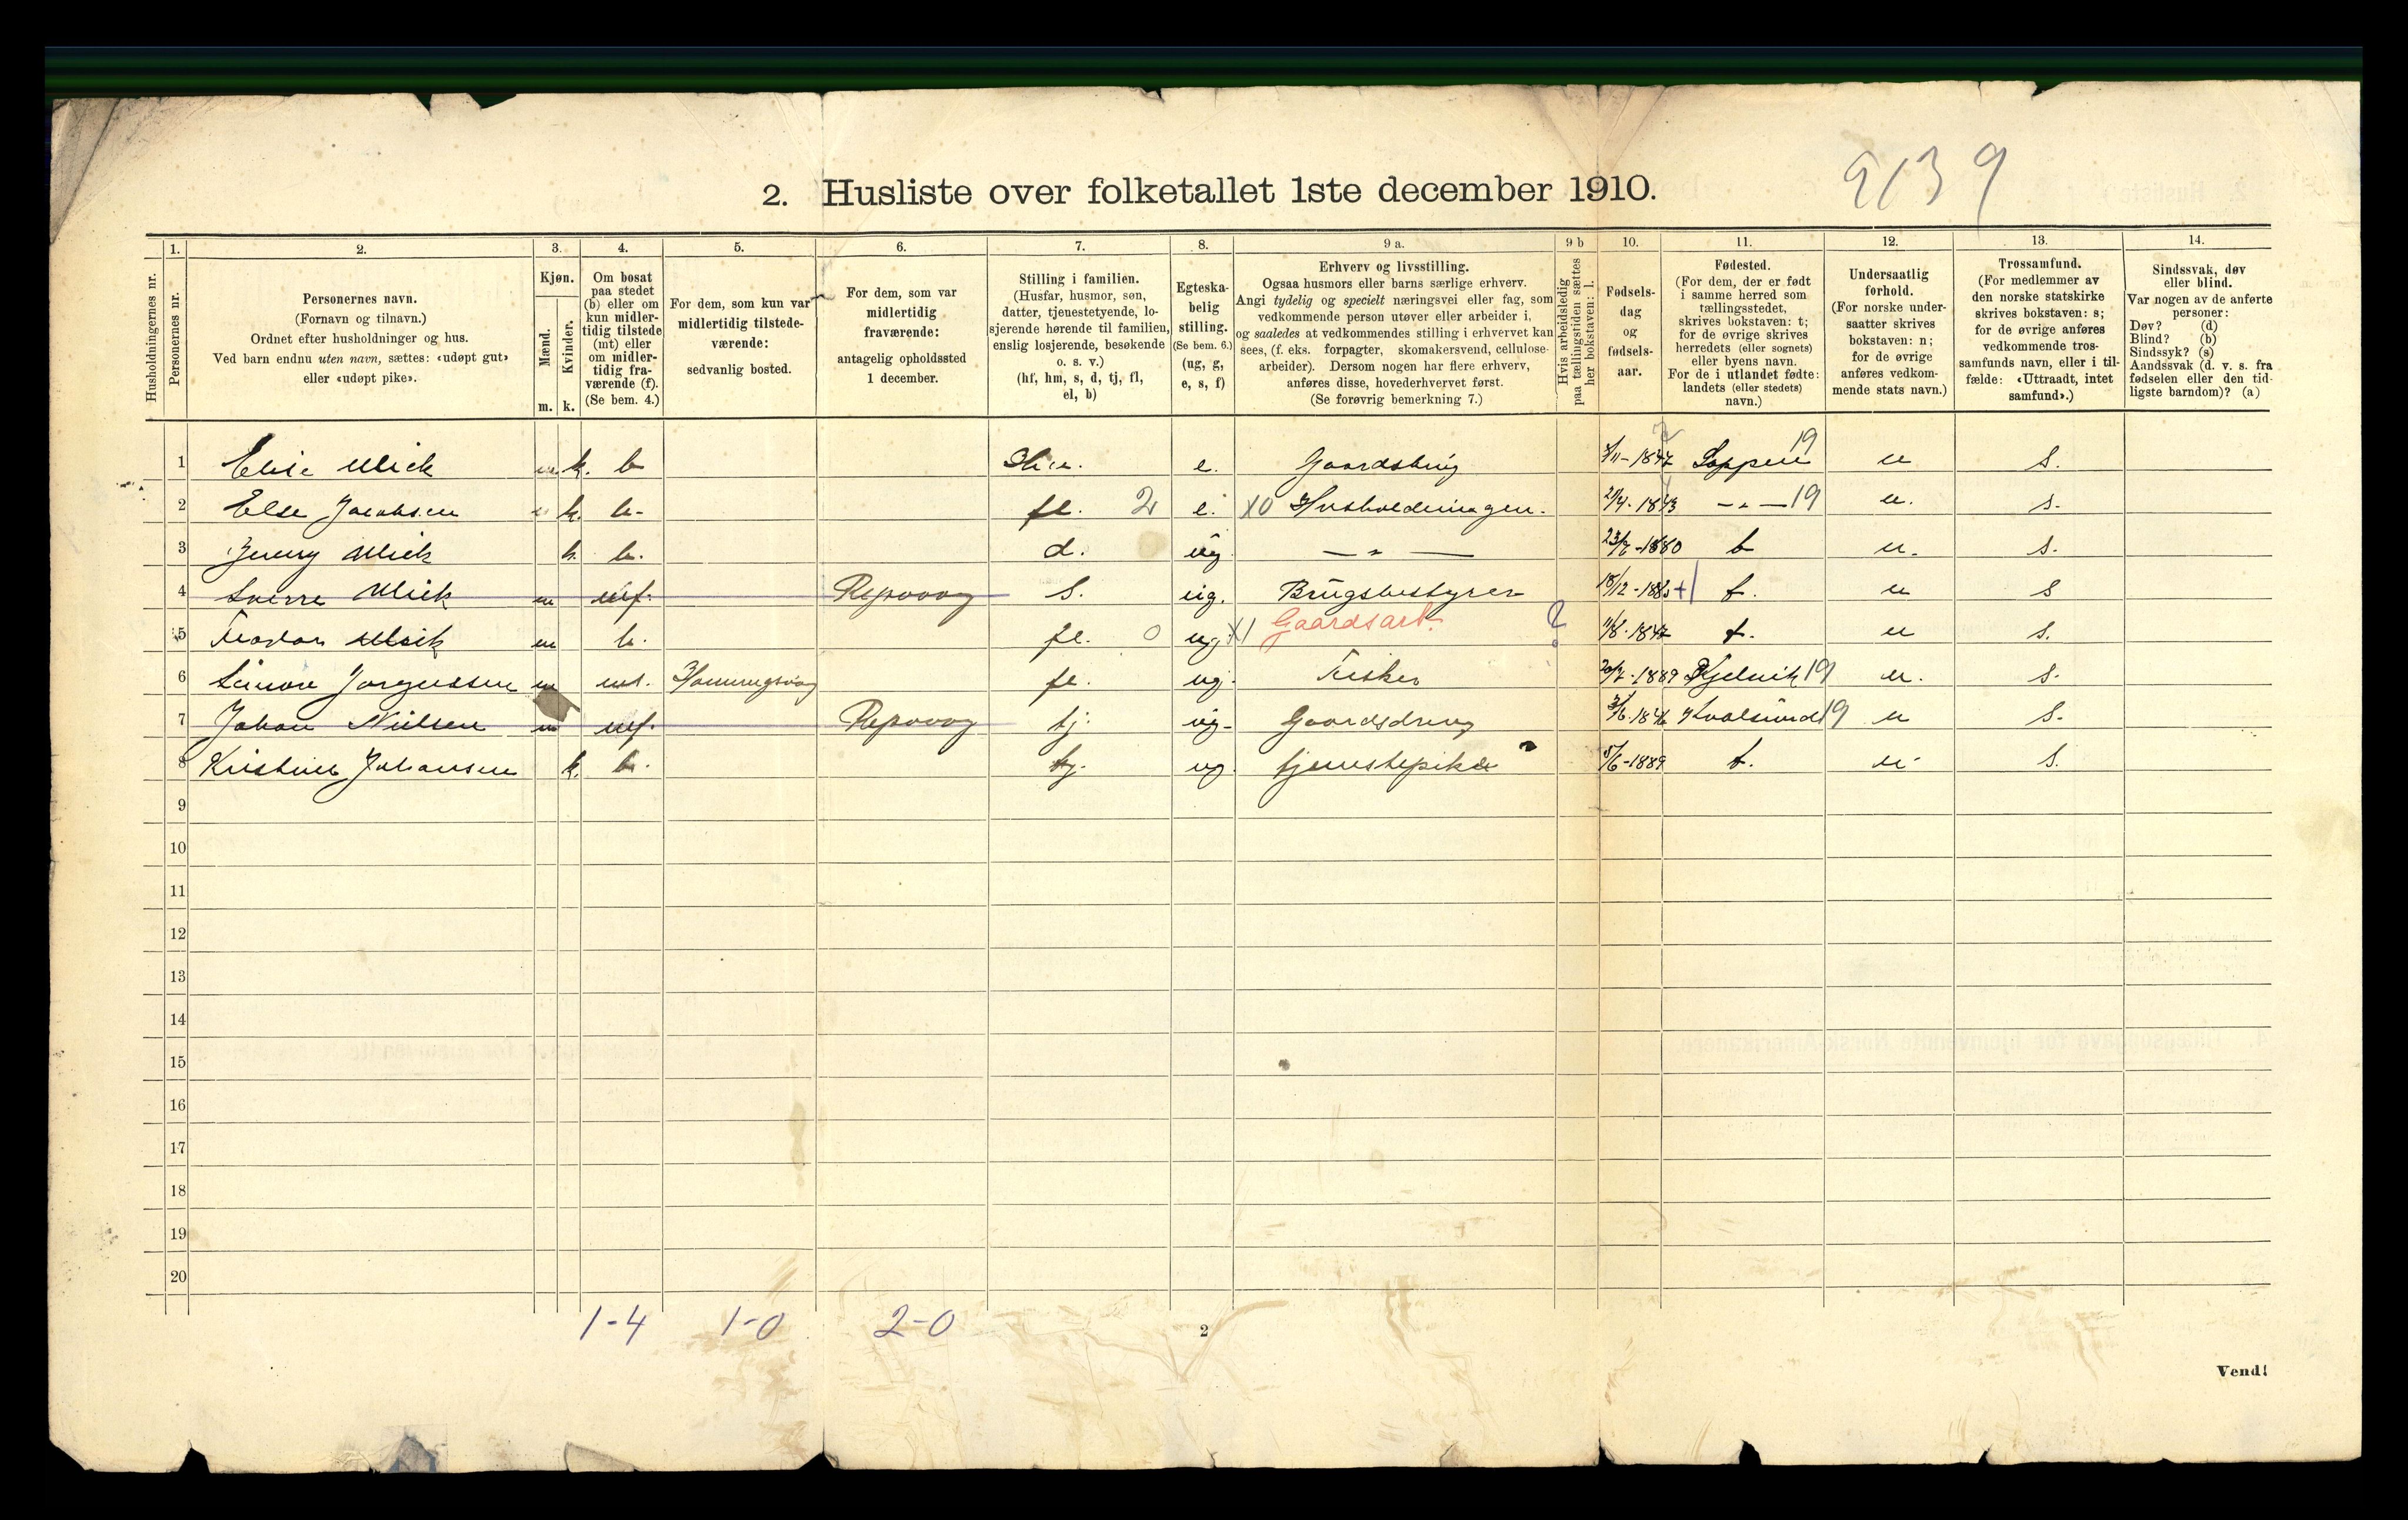 9139
2. Husliste over folketallet 1ste december 1910.
1. 2. 3. 4. 5. 6. 7. 8. 9 a. 9 b 10. 11. 12. 13. 14.
Husholdningernes nr.
Personernes nr.
Personernes navn.
(Fornavn og tilnavn.)
Ordnet efter husholdninger og hus.
Ved barn endnu uten navn, sættes: «udøpt gut»
eller «udøpt pike».
Kjøn.
Mænd.
Kvinder.
m. k.
Om bosat
paa stedet
(b) eller om
kun midler-
tidig tilstede
(mt) eller
om midler-
tidig fra-
værende (f).
(Se bem. 4.)
For dem, som kun var
midlertidig tilstede-
værende:
sedvanlig bosted.
For dem, som var
midlertidig
fraværende:
antagelig opholdssted
1 december.
Stilling i familien.
(Husfar, husmor, søn,
datter, tjenestetyende, lo-
sjerende hørende til familien,
enslig losjerende, besøkende
o. s. v.)
(hf, hm, s, d, tj, fl,
el, b)
Egteska-
belig
stilling.
(Se bem. 6.)
(ug, g,
e, s, f)
Erhverv og livsstilling.
Ogsaa husmors eller barns særlige erhverv.
Angi tydelig og specielt næringsvei eller fag, som
vedkommende person utøver eller arbeider i,
og saaledes at vedkommendes stilling i erhvervet kan
sees, (f. eks. forpagter, skomakersvend, cellulose-
arbeider). Dersom nogen har flere erhverv,
anføres disse, hovederhvervet først.
(Se forøvrig bemerkning 7.)
Hvis arbeidsledig
paa tællingstiden sættes
her bokstaven: l.
Fødsels-
dag
og
fødsels-
aar.
Fødested.
(For dem, der er født
i samme herred som
tællingsstedet,
skrives bokstaven: t;
for de øvrige skrives
herredets (eller sognets)
eller byens navn.
For de i utlandet fødte:
landets (eller stedets)
navn.)
Undersaatlig
forhold.
(For norske under-
saatter skrives
bokstaven: n;
for de øvrige
anføres vedkom-
mende stats navn.)
Trossamfund.
(For medlemmer av
den norske statskirke
skrives bokstaven: s;
for de øvrige anføres
vedkommende tros-
samfunds navn, eller i til-
fælde: «Uttraadt, intet
samfund».)
Sindssvak, døv
eller blind.
Var nogen av de anførte
personer:
Døv? (d)
Blind? (b)
Sindssyk? (s)
Aandssvak (d. v. s. fra
fødselen eller den tid-
ligste barndom)? (a)
1 Elise Ulich k. b e. 1847 Loppen 19 n s.
2 Else Jacobsen k. b. fl. 2 e. X0 Husholdningen. 21/4-1843 — „ — 19 n. s.
3 Jenny Ulich k. b. d. ug — „ — 1880 t n. s.
4 Sverre Ulich m mf. Repvaag s. ug. Brugsbestyrer 18/12-1883 +1 t. n s
5 Teodor Ulich m b. fl. 0 ug. X1 Gaardsarb. ? 11/8-1847 t. n s.
6 Simon Jørgensen m mt. Honningsvaag fl. ug. Fisker 1889 Kjelvik 19 n. s.
7 Johan Nielsen m mf. Repvaag tj. ug. Gaardsdreng 1846 Kvalsund 19 n s.
8 Kristine Johansen k. b. tj. ug. tjenestepike 5/6-1889 t. n s.
9
10
11
12
13
14
15
16
17
18
19
20
1-4 1-0 2-0
2
Vend!